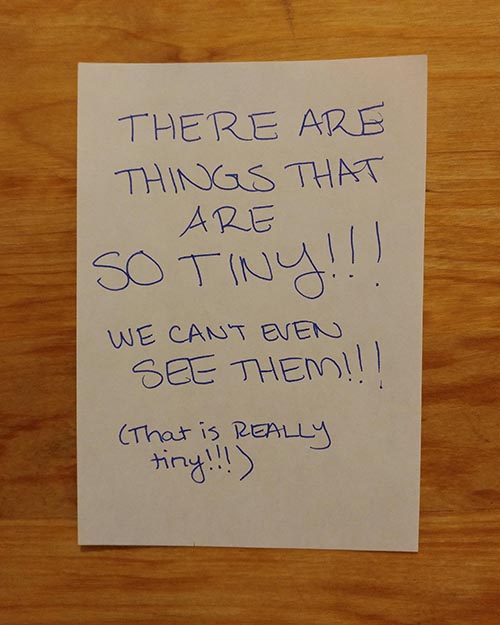 THERE ARE
THINGS THAT
ARE
SO TINY!!!
WE CAN'T EVEN
SEE THEM!!!
(That is REALLY
tiny!!!)